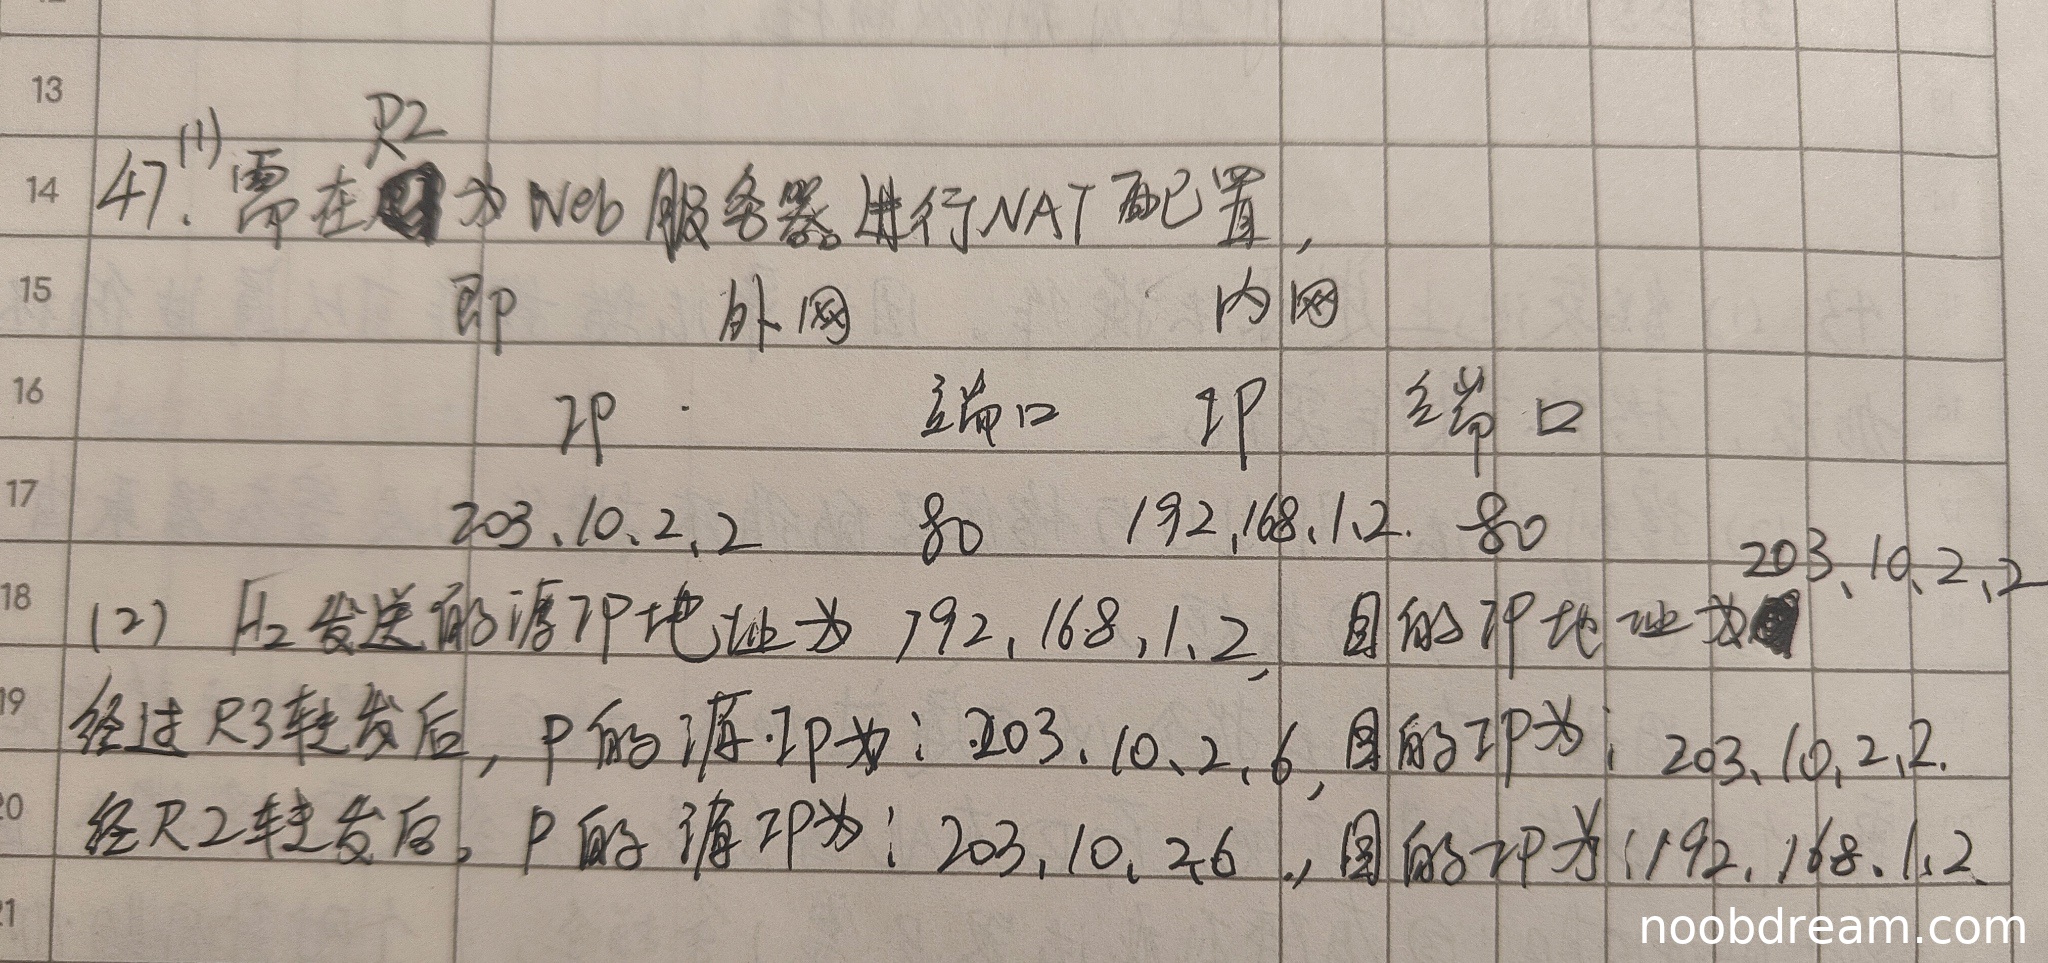 13
R2
14 47.(1) 需在为Web服务器进行NAT配置,
15 即 外网 内网
16 IP 端口 IP 端口
17 203.10.2.2 80 192.168.1.2. 80
203.10.2.2
18 (2) H2发送的源IP地址为 192.168.1.2, 目的IP地址为
19 经过R3转发后, P的源IP为: 203.10.2.6, 目的IP为: 203.10.2.2.
20 经R2转发后, P的源IP为: 203.10.2.6., 目的IP为: 192.168.1.2.
21
noobdream.com